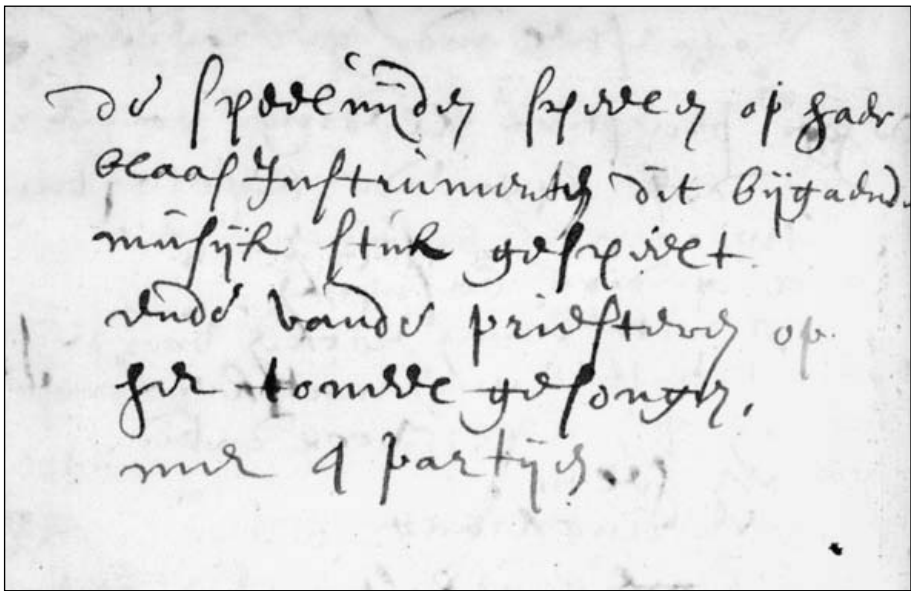 de speelluijden speelen op haer
blaas Instrumenten dit bijgaend
musijk stuk gespeelt
ende vande priesteren op
het toneel gesongen,
met 4 partijen